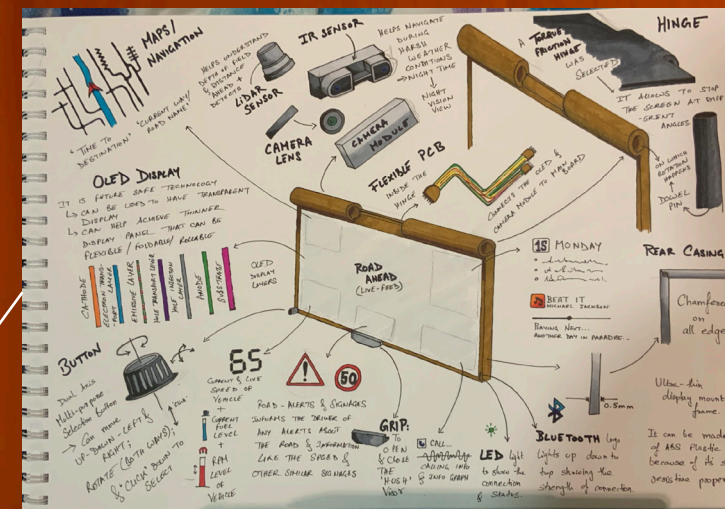 MAPS/
NAVIGATION
"TIME TO
DESTINATION"
"CURRENT WAY/
ROAD NAME"
HELPS UNDERSTAND
DEPTH OF FIELD
& DISTANCE
AHEAD +
DETECTS
LiDAR
SENSOR
IR SENSOR
HELPS NAVIGATE
DURING
HARSH
WEATHER
CONDITIONS
→ NIGHT TIME
↳ NIGHT
VISION
VIEW
CAMERA
LENS
CAMERA
MODULE
A TORQUE
FRICTION
HINGE
WAS
SELECTED
HINGE
IT ALLOWS TO STOP
THE SCREEN AT DIFF
-ERENT
ANGLES
ON WHICH
ROTATION
HAPPENS
DOWEL
PIN
OLED DISPLAY
IT IS FUTURE SAFE TECHNOLOGY
↳ CAN BE USED TO HAVE TRANSPARENT
DISPLAY
↳ CAN HELP ACHIEVE THINNER
DISPLAY PANEL THAT CAN BE
FLEXIBLE / FOLDABLE / ROLLABLE
FLEXIBLE PCB
INSIDE THE
HINGE
CONNECTS THE OLED &
CAMERA MODULE TO MAIN
BOARD
CATHODE
ELECTRON TRANS-
PORT LAYER
EMISSIVE LAYER
HOLE TRANSPORT LAYER
HOLE INJECTION
LAYER
ANODE
SUBSTRATE
OLED
DISPLAY
LAYERS
ROAD
AHEAD
(LIVE-FEED)
15 MONDAY
BEAT IT
MICHAEL JACKSON
PLAYING NEXT...
ANOTHER DAY IN PARADISE..
REAR CASING
Chamfered
on
all edges
Ultra-thin
display mount
frame.
0.5mm
It can be made
of ABS Plastic
because of its
BUTTON
Dual Axis
Multi-purpose
Selection Button
→ Can move
UP-DOWN-LEFT &
RIGHT;
ROTATE (BOTH WAYS);
& "CLICK" DOWN TO
SELECT
65
CURRENT & LIVE
SPEED OF
VEHICLE
+
CURRENT
FUEL
LEVEL
+
RPM
LEVEL
OF
VEHICLE
!
50
ROAD-ALERTS & SIGNAGES
INFORMS THE DRIVER OF
ANY ALERTS ABOUT
THE ROAD & INFORMATION
LIKE THE SPEED &
OTHER SIMILAR SIGNAGES
GRIP:
TO
OPEN
& CLOSE
THE
"HUSH"
VISOR
CALL...
CALLING INFO
& INFO GRAPH
LED light
to show the
connection
& status.
BLUETOOTH logo
lights up down to
top showing the
strength of connection.